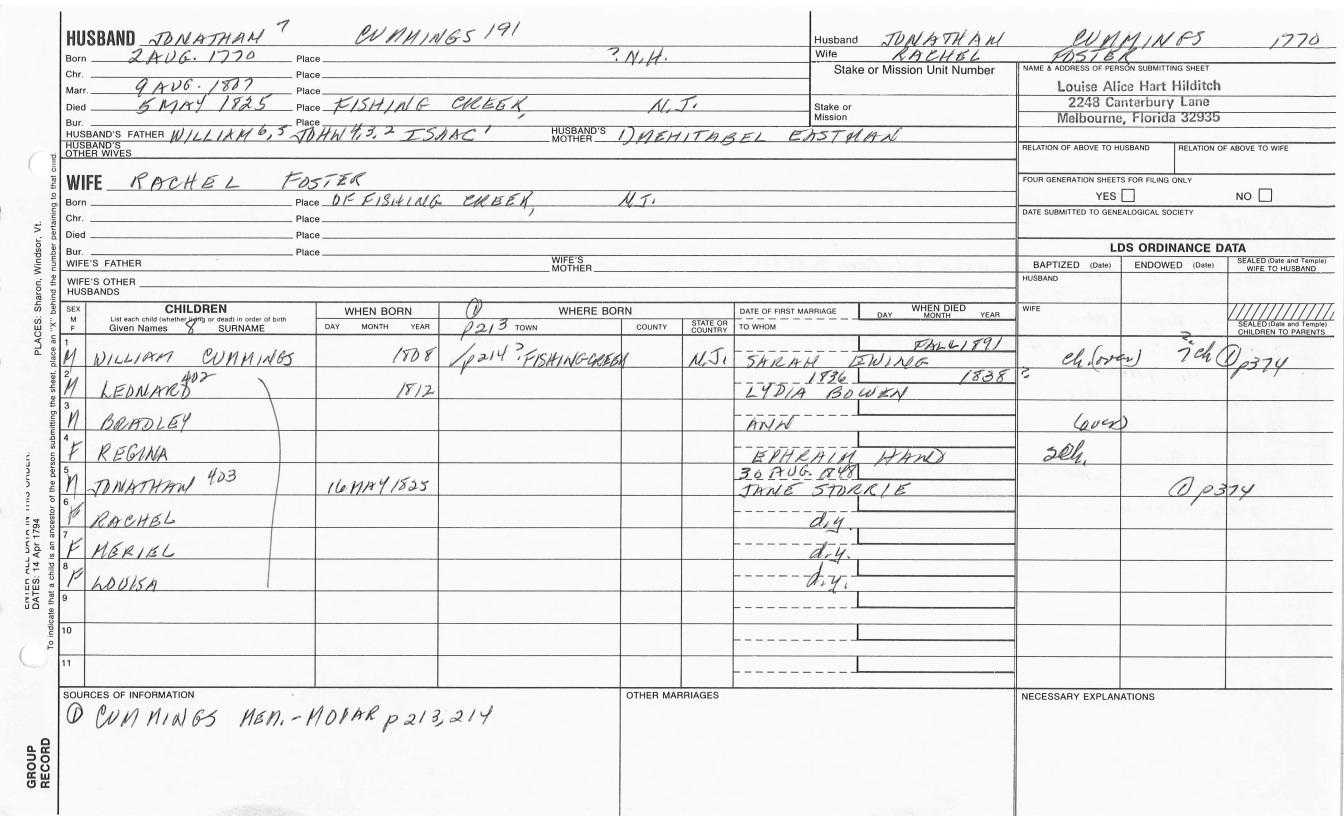 HUSBAND JONATHAN 7 CUMMINGS 191
Born 2 AUG. 1770 Place ? N.H.
Chr. Place
Marr. 9 AUG. 1807 Place
Died 5 MAY 1825 Place FISHING CREEK, N.J.
Bur. Place
HUSBAND'S FATHER WILLIAM 6,5 JOHN 4,3,2 ISAAC 1 HUSBAND'S MOTHER 1) MEHITABEL EASTMAN
HUSBAND'S OTHER WIVES
Husband JONATHAN CUMMINGS 1770
Wife RACHEL FOSTER
Stake or Mission Unit Number
Stake or Mission
NAME & ADDRESS OF PERSON SUBMITTING SHEET
Louise Alice Hart Hilditch
2248 Canterbury Lane
Melbourne, Florida 32935
RELATION OF ABOVE TO HUSBAND RELATION OF ABOVE TO WIFE
FOUR GENERATION SHEETS FOR FILING ONLY
YES NO
DATE SUBMITTED TO GENEALOGICAL SOCIETY
WIFE RACHEL FOSTER
Born Place OF FISHING CREEK, N.J.
Chr. Place
Died Place
Bur. Place
WIFE'S FATHER WIFE'S MOTHER
WIFE'S OTHER HUSBANDS
LDS ORDINANCE DATA
BAPTIZED (Date) ENDOWED (Date) SEALED (Date and Temple) WIFE TO HUSBAND
HUSBAND
WIFE
SEALED (Date and Temple) CHILDREN TO PARENTS
SEX M F CHILDREN WHEN BORN ① WHERE BORN DATE OF FIRST MARRIAGE WHEN DIED
List each child (whether living or dead) in order of birth
Given Names 8 SURNAME DAY MONTH YEAR p213 TOWN COUNTY STATE OR COUNTRY TO WHOM DAY MONTH YEAR
1 FALL 1891
M WILLIAM CUMMINGS 1808 p214 ? FISHING CREEK N.J. SARAH EWING ch. (over) 7 ch ① p374
2 1836 1838 ?
M LEONARD 402 1812 LYDIA BOWEN
3
M BRADLEY ANN (over)
4
F REGINA EPHRAIM HAND 2ch.
5 30 AUG. 1848
M JONATHAN 403 16 MAY 1825 JANE STORRIE ① p374
6
F RACHEL d.y.
7
F MERIEL d.y.
8
F LOUISA d.y.
9
10
11
SOURCES OF INFORMATION
① CUMMINGS MEM. - MOOAR p 213, 214
OTHER MARRIAGES
NECESSARY EXPLANATIONS
PLACES: Sharon, Windsor, Vt.
ENTER ALL DATA IN THIS ORDER:
DATES: 14 Apr 1794
To indicate that a child is an ancestor of the person submitting the sheet, place an "X" behind the number pertaining to that child.
GROUP RECORD